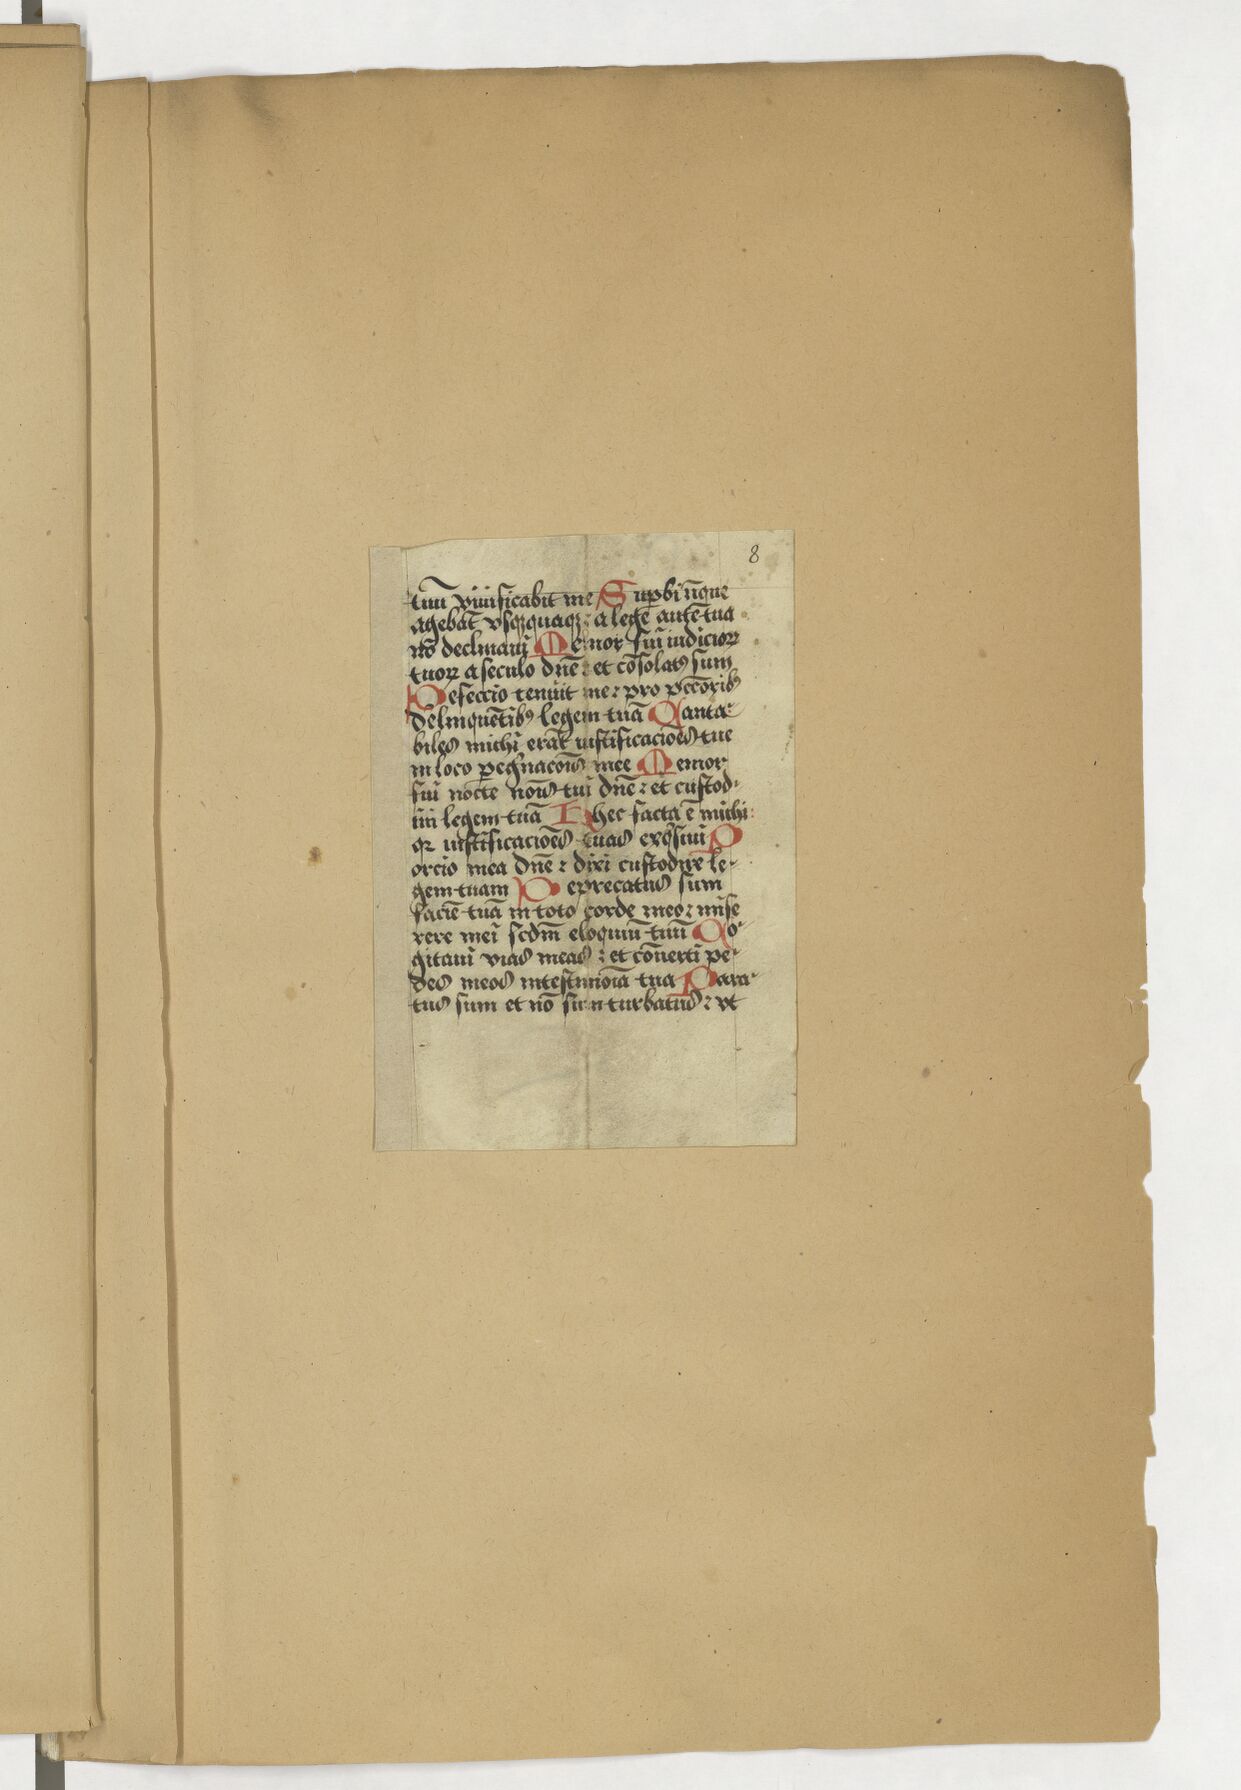 8
tuū viuificabit me Supbi īique
agebāt vsqꝫquaqꝫ : a lege autē tua
nō declinaui Memor fui iudicioꝝ
tuoꝝ a seculo dn̄e : et cōsolatꝰ sum
Defeccio tenuit me : pro pccōribꝰ
delinquētibꝰ legem tuā Canta-
biles michi erāt iustificacioēs tue
in loco pegͥnacōis mee Memor
fui nocte nois tui dn̄e : et custod-
iui legem tuā Hec facta ē michi :
qꝛ iustificacioēs tuas exqͥsiui P
orcio mea dn̄e : dixi custodire le-
gem tuam Deprecatus sum
faciē tuā in toto corde meo : mise
rere mei scdm̄ eloquiū tuū Co-
gitaui vias meas : et cōuerti pe-
des meos in testimoīa tua Para-
tus sum et nō sum turbatus : vt